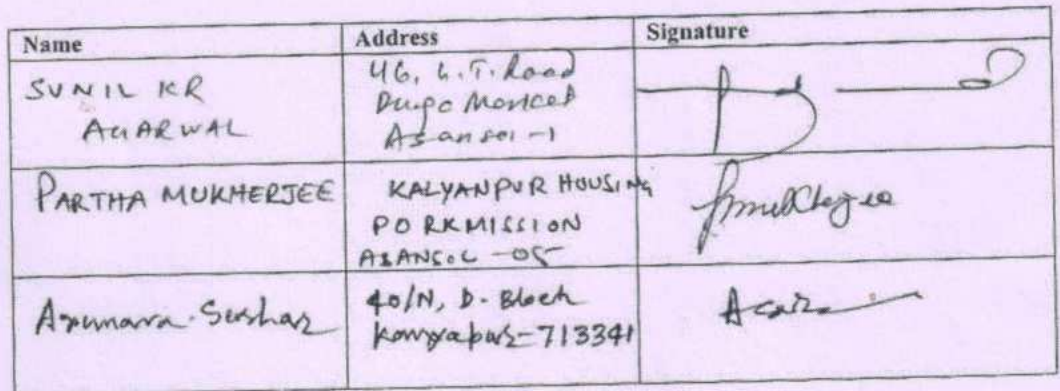 Name Address Signature
SUNIL KR
AGARWAL
46, G.T. Road
Durga Market
Asansol-1
PARTHA MUKHERJEE
KALYANPUR HOUSING
PO RKMISSION
ASANSOL -05
Pmukherjee
40/N, D-Block
713341